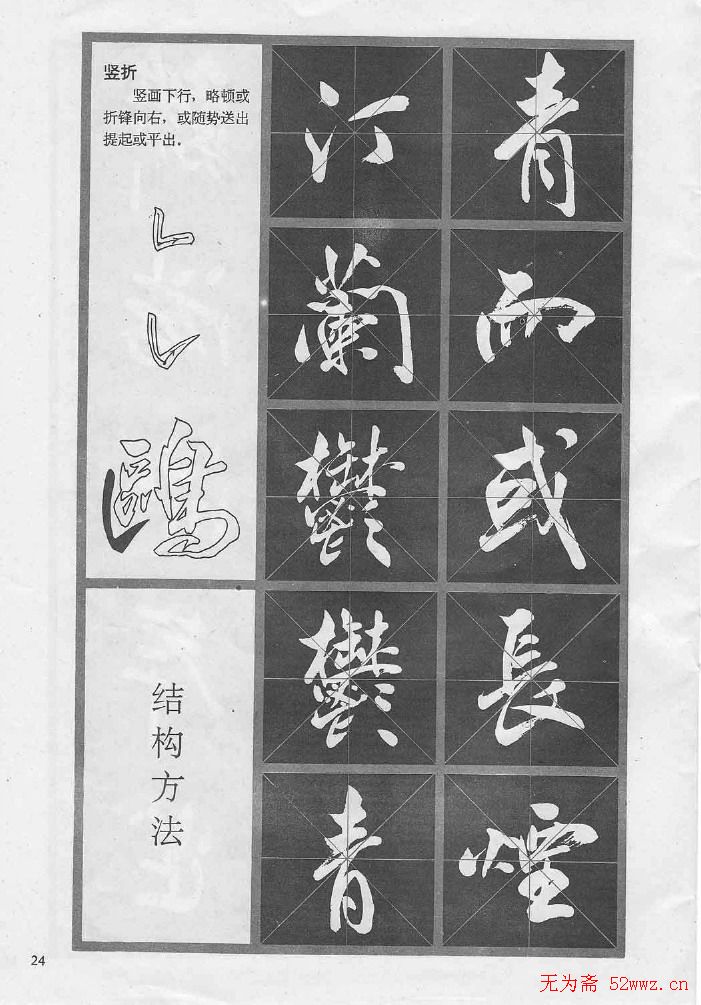 竖折
竖画下行，略顿或
折锋向右，或随势送出
提起或平出.
鷗
结构方法
汀
蘭
鬱
鬱
青
青
而
或
長
煙
24
无为斋 52wwz.cn